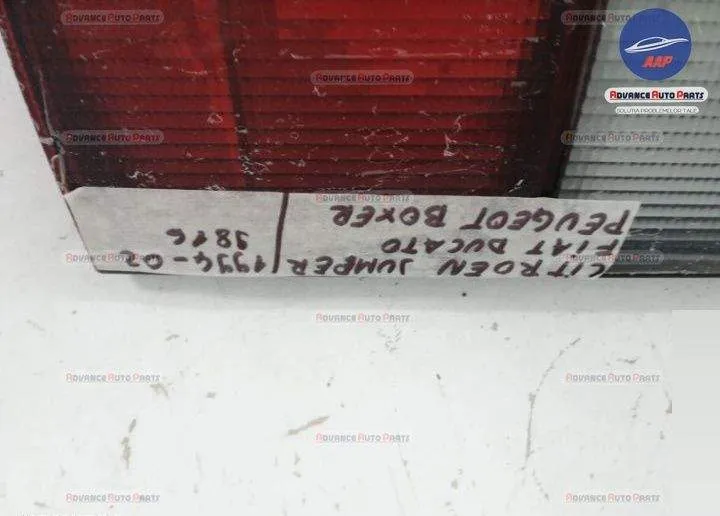 AAP
ADVANCE AUTO PARTS
SOLUTIA PROBLEMELOR TALE
CITROEN JUMPER
FIAT DUCATO
PEUGEOT BOXER
1994-02
9816
ADVANCE AUTO PARTS
ADVANCE AUTO PARTS
ADVANCE AUTO PARTS
ADVANCE AUTO PARTS
ADVANCE AUTO PARTS
ADVANCE AUTO PARTS
ADVANCE AUTO PARTS
ADVANCE AUTO PARTS
ADVANCE AUTO PARTS
ADVANCE AUTO PARTS
ADVANCE AUTO PARTS
ADVANCE AUTO PARTS
ADVANCE AUTO PARTS
ADVANCE AUTO PARTS